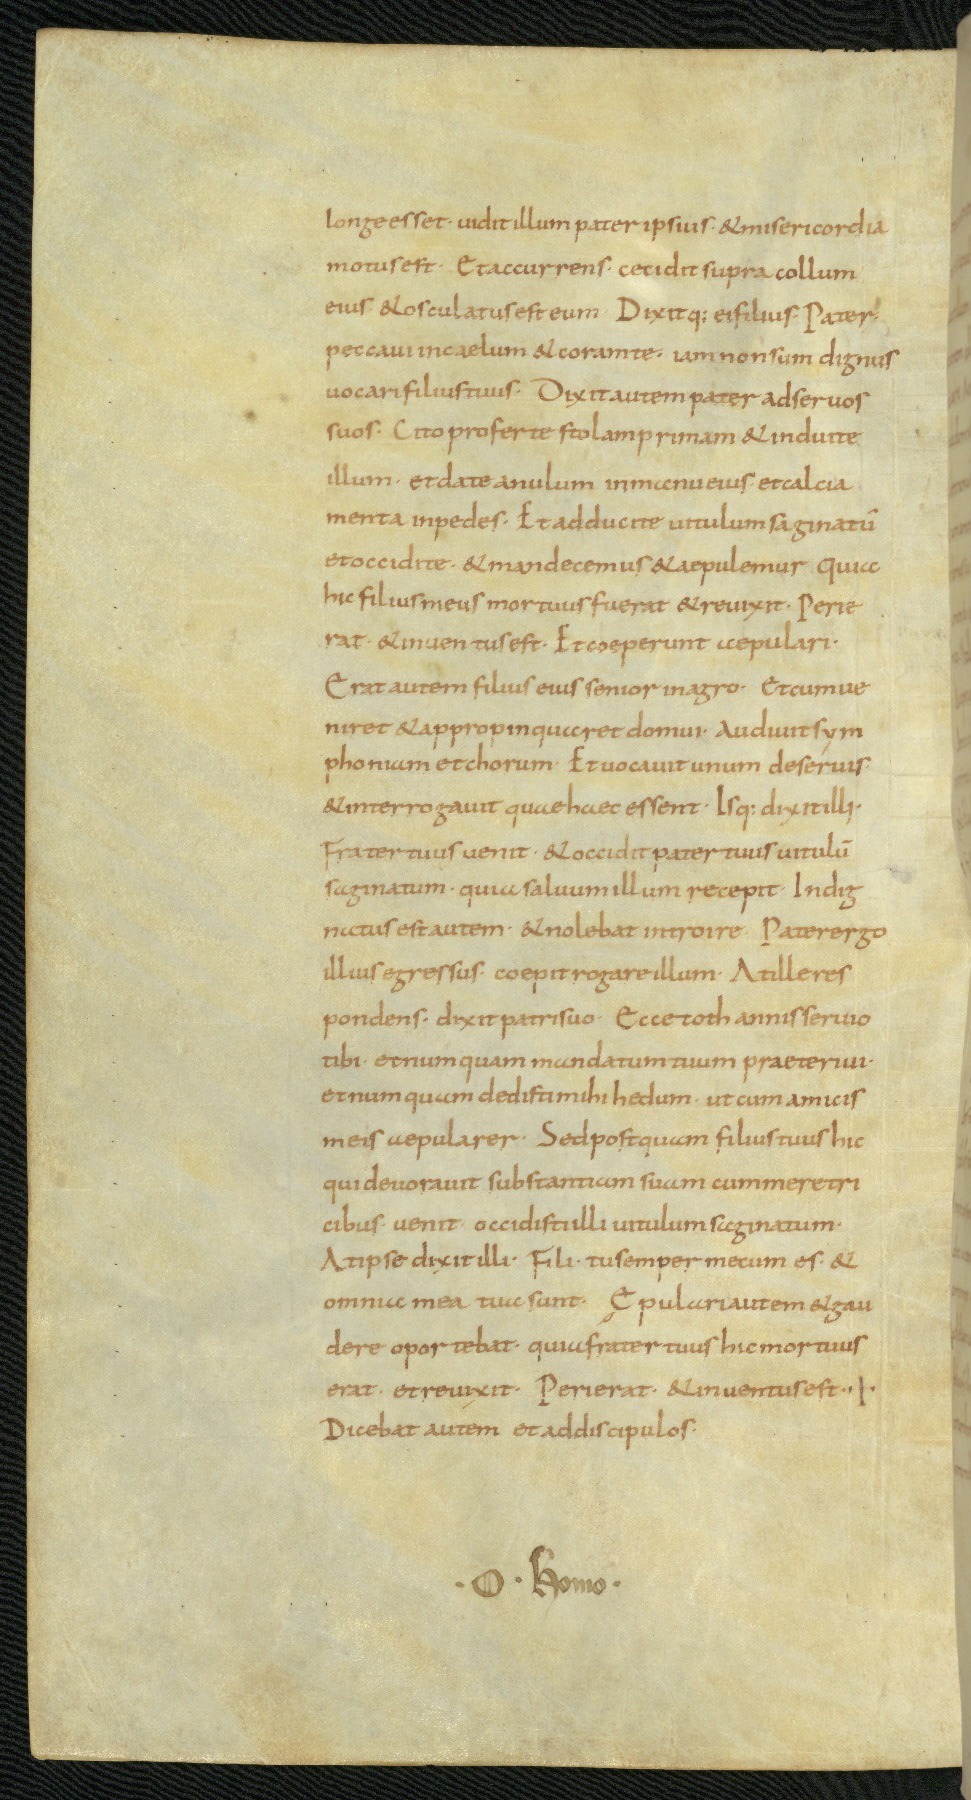 longe esset · uidit illum pater ipsius · & misericordia
motus est · Et accurrens · cecidit supra collum
eius & osculatus est eum · Dixitq; ei filius · Pater ·
peccaui in caelum & coram te · iam non sum dignus
uocari filius tuus · Dixit autem pater ad seruos
suos · Cito proferte stolam primam & induite
illum · et date anulum in manu eius · et calcia
menta in pedes · Et adducite uitulum saginatū
et occidite · & mandecemus & aepulemur quia
hic filius meus mortuus fuerat & reuixit · Perie
rat · & inuentus est · Et coeperunt aepulari ·
Erat autem filius eius senior in agro · Et cum ue
niret & appropinquaret domui · Audiuit sym
phoniam et chorum · Et uocauit unum de seruis ·
& interrogauit quae haec essent · Isq; dixit illi ·
Frater tuus uenit · & occidit pater tuus uitulū
saginatum · quia saluum illum recepit · Indig
natus est autem · & nolebat introire · Pater ergo
illius egressus · coepit rogare illum · At ille res
pondens · dixit patri suo · Ecce toth annis seruio
tibi · et numquam mandatum tuum praeteriui ·
et numquam dedisti mihi hedum · ut cum amicis
meis aepularer · Sed postquam filius tuus hic
qui deuorauit substantiam suam cum meretri
cibus · uenit · occidisti illi uitulum saginatum ·
At ipse dixit illi · Fili · tu semper mecum es · &
omnia mea tua sunt · Epulari autem & gau
dere oportebat · quia frater tuus hic mortuus
erat · et reuixit · Perierat · & inuentus est ·
Dicebat autem et ad discipulos ·
· O · Homo ·